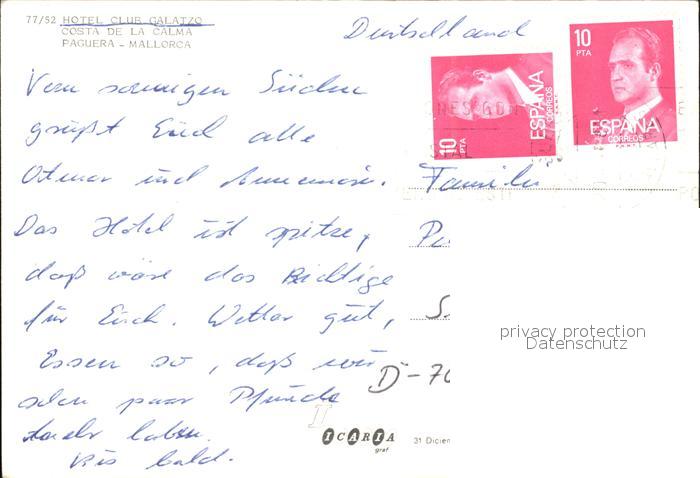 77/52 HOTEL CLUB GALATZO
COSTA DE LA CALMA
PAGUERA - MALLORCA
Deutschland
10 PTA
ESPAÑA
CORREOS
10
PTA
ESPAÑA
CORREOS
Vom sonnigen Süden
grüßt Euch alle
Otmar und Annemarie.
Das Hotel ist spitze,
daß wäre das Richtige
für Euch. Wetter gut,
Essen so, daß wir
schon paar Pfunde
mehr haben.
Bis bald.
Familie
D-70
privacy protection
Datenschutz
ICARIA
graf.
31 Diciem